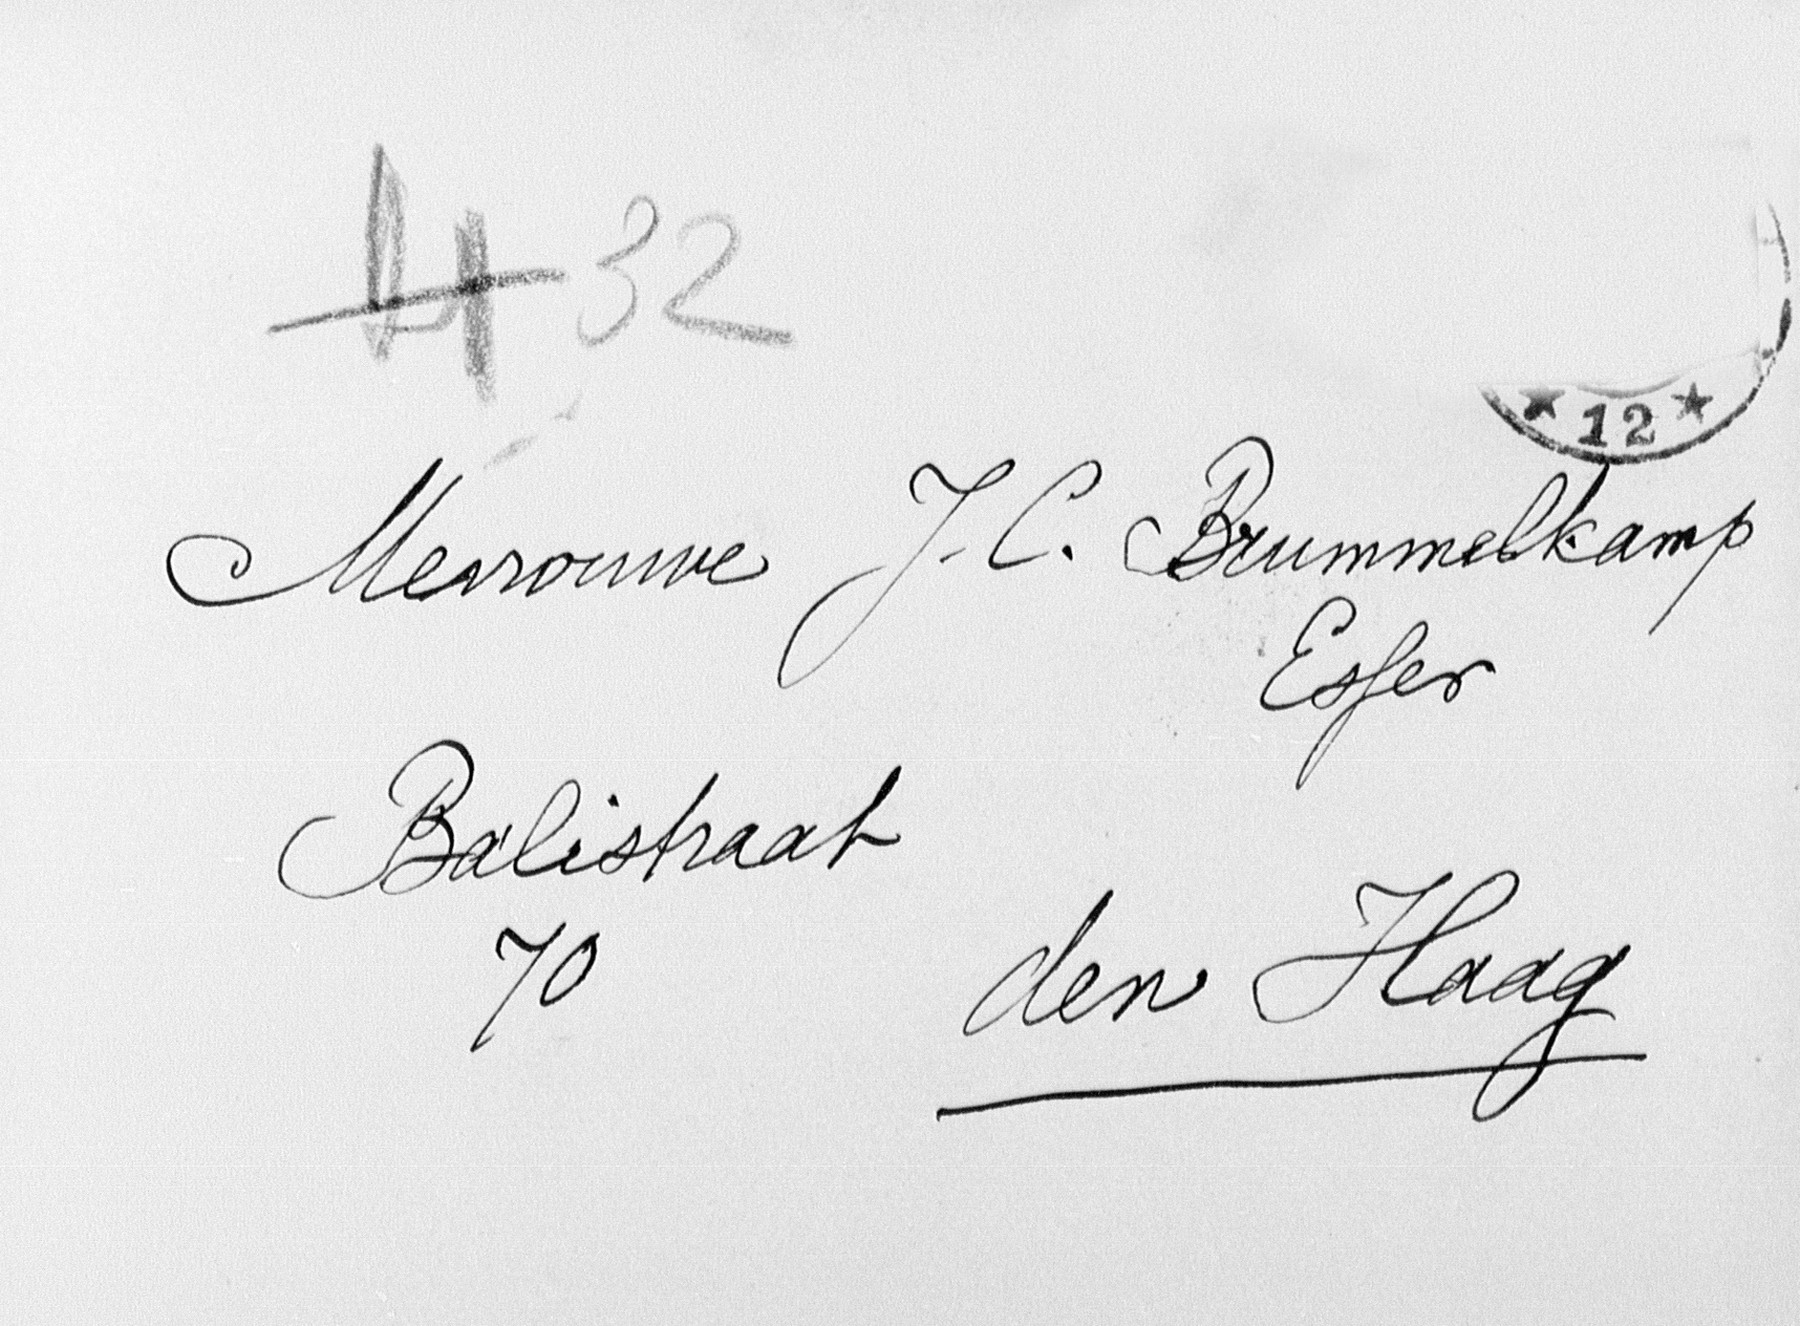 32
★ 12 ★
Mevrouwe J. C. Brummelkamp
Esser
Balistraat
70
den Haag